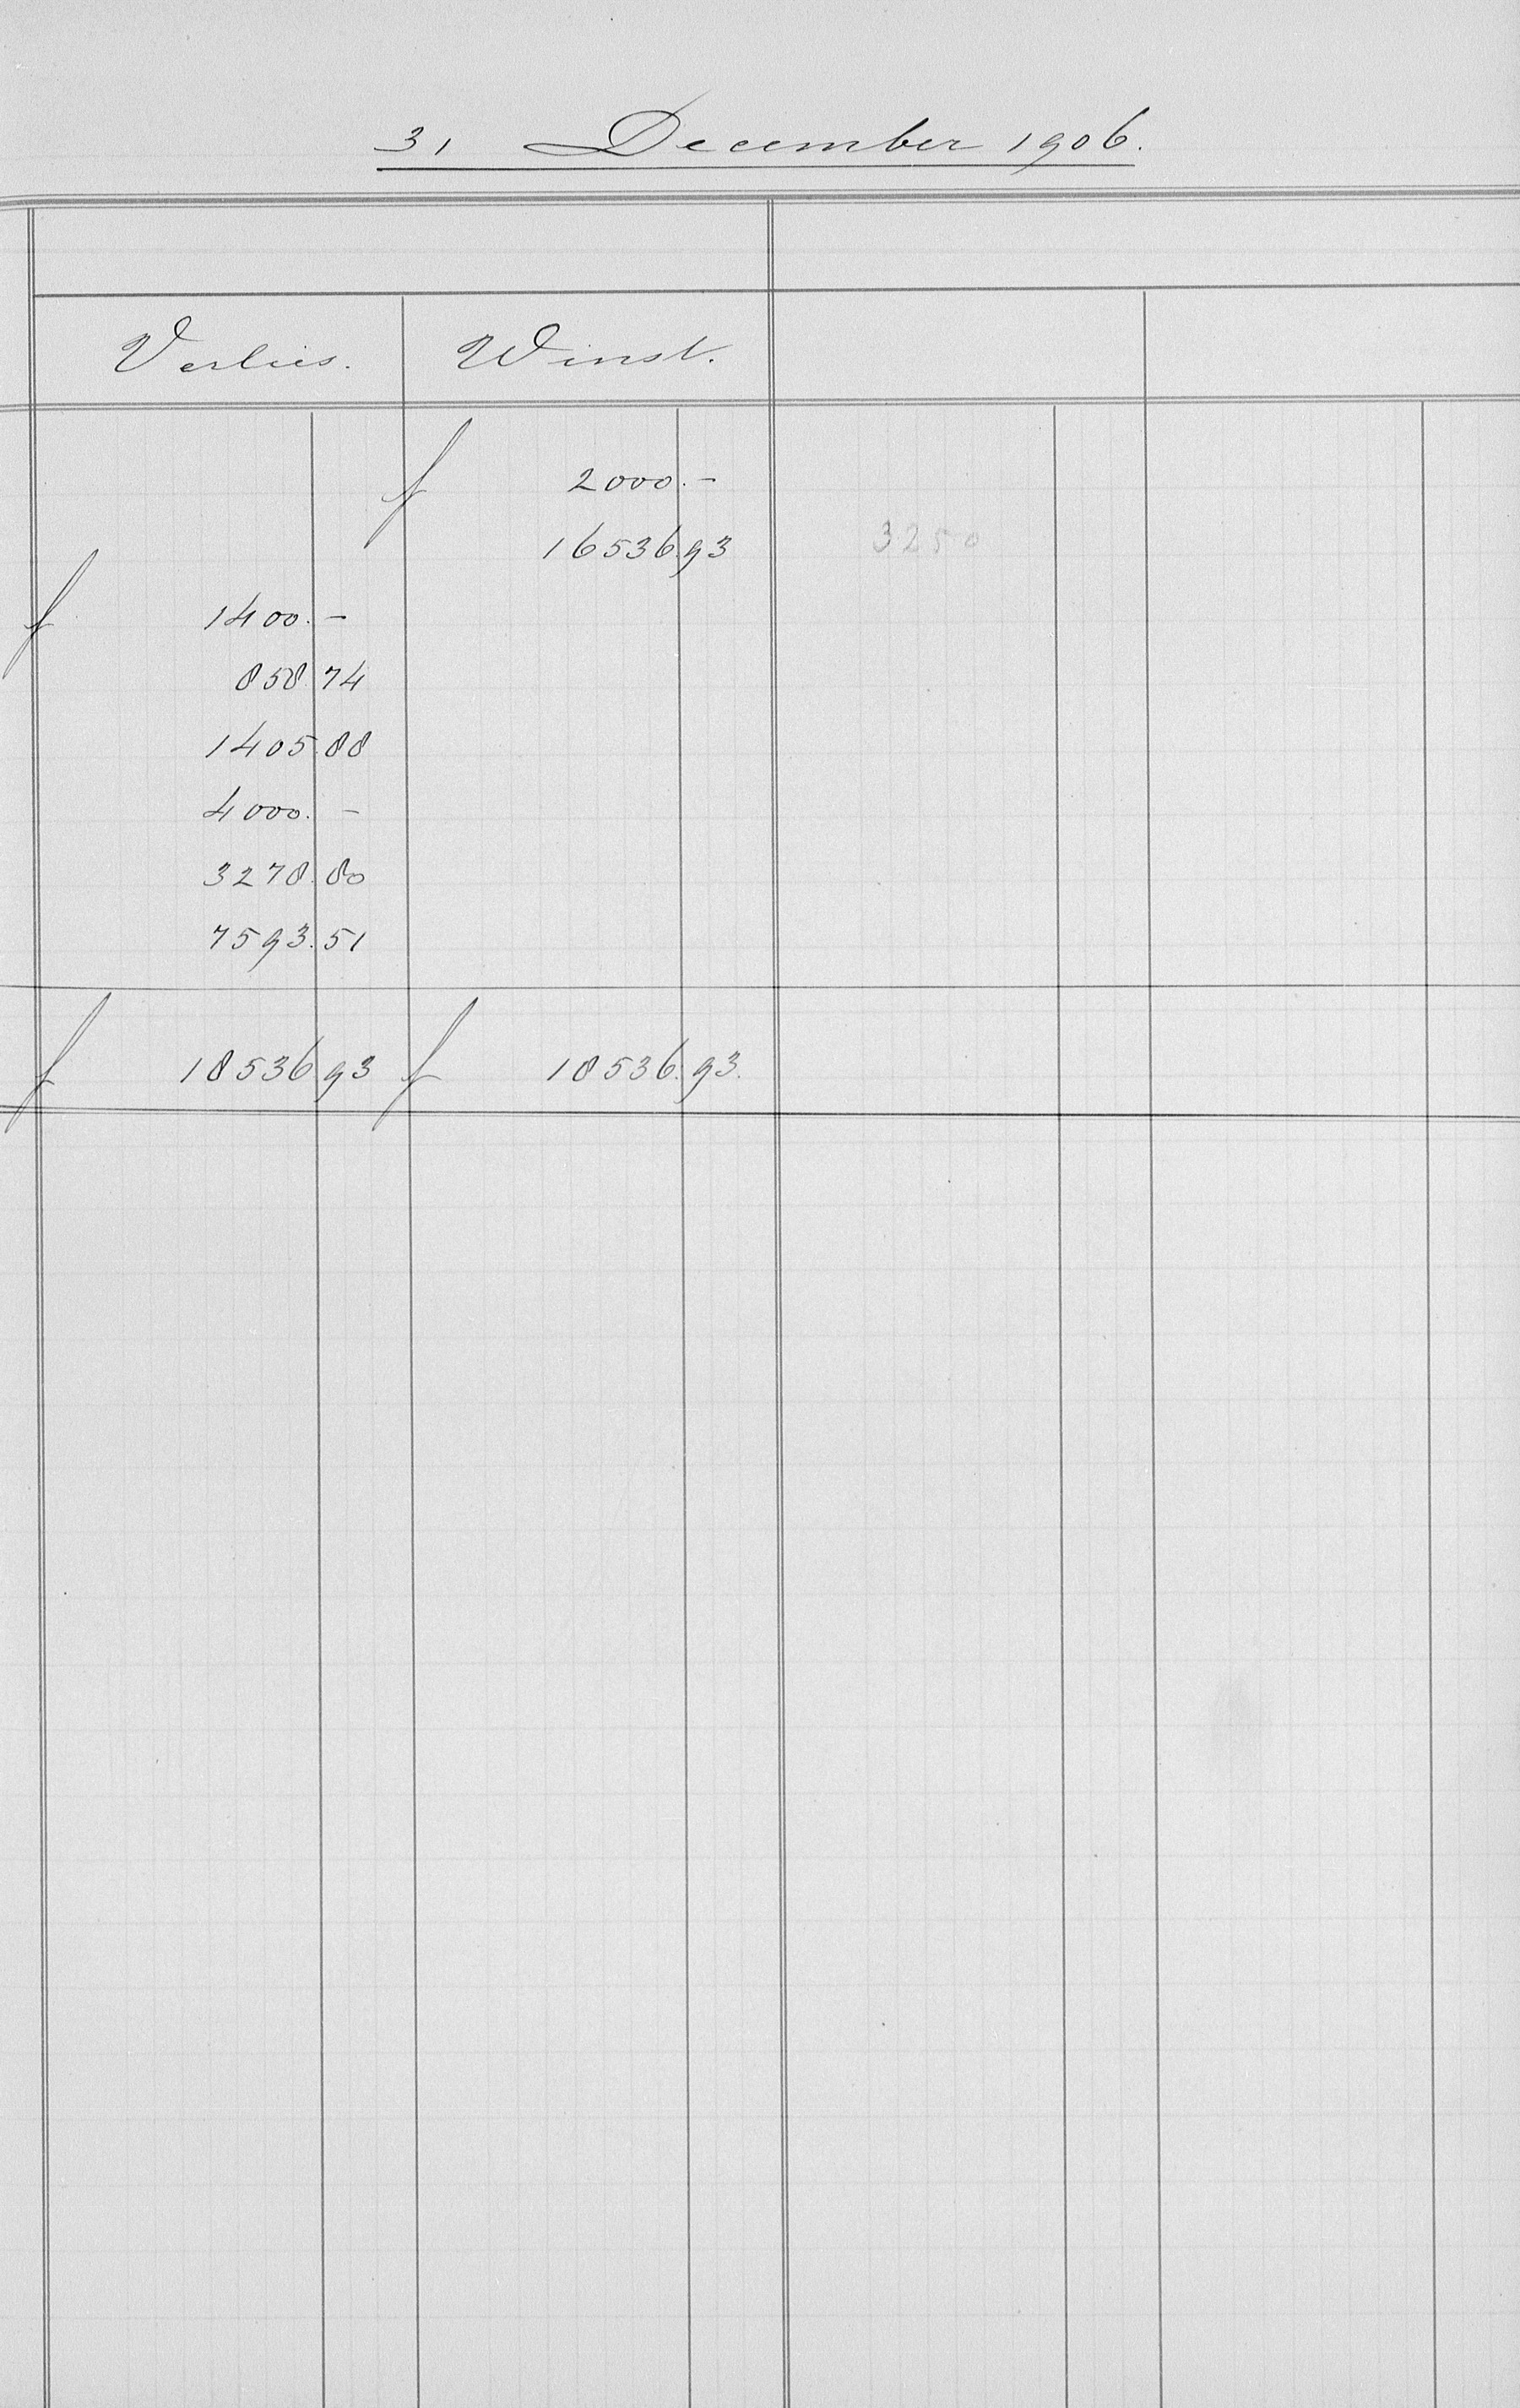 31 December 1906.
Verlies. Winst.
f 2000.-
16536.93 3250
f 1400.-
858.74
1405.88
4000.-
3278.80
7593.51
f 18536.93 f 18536.93.